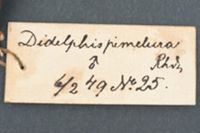 Didelphis pimelura
♂ Rhdt.
6/2 79 No. 25.